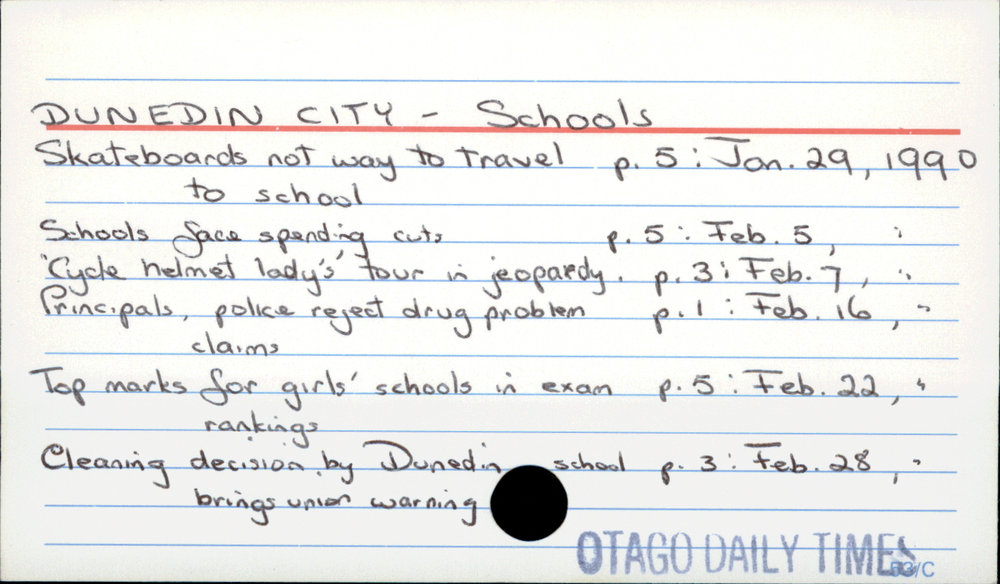 DUNEDIN CITY - Schools
Skateboards not way to travel p. 5 : Jan. 29, 1990
to school
Schools face spending cuts p. 5 : Feb. 5, "
"Cycle helmet lady's' tour in jeopardy. p. 3 : Feb. 7, "
Principals, police reject drug problem p. 1 : Feb. 16, "
claims
Top marks for girls' schools in exam p. 5 : Feb. 22, "
rankings
Cleaning decision by Dunedin school p. 3 : Feb. 28, "
brings union warning
OTAGO DAILY TIMES